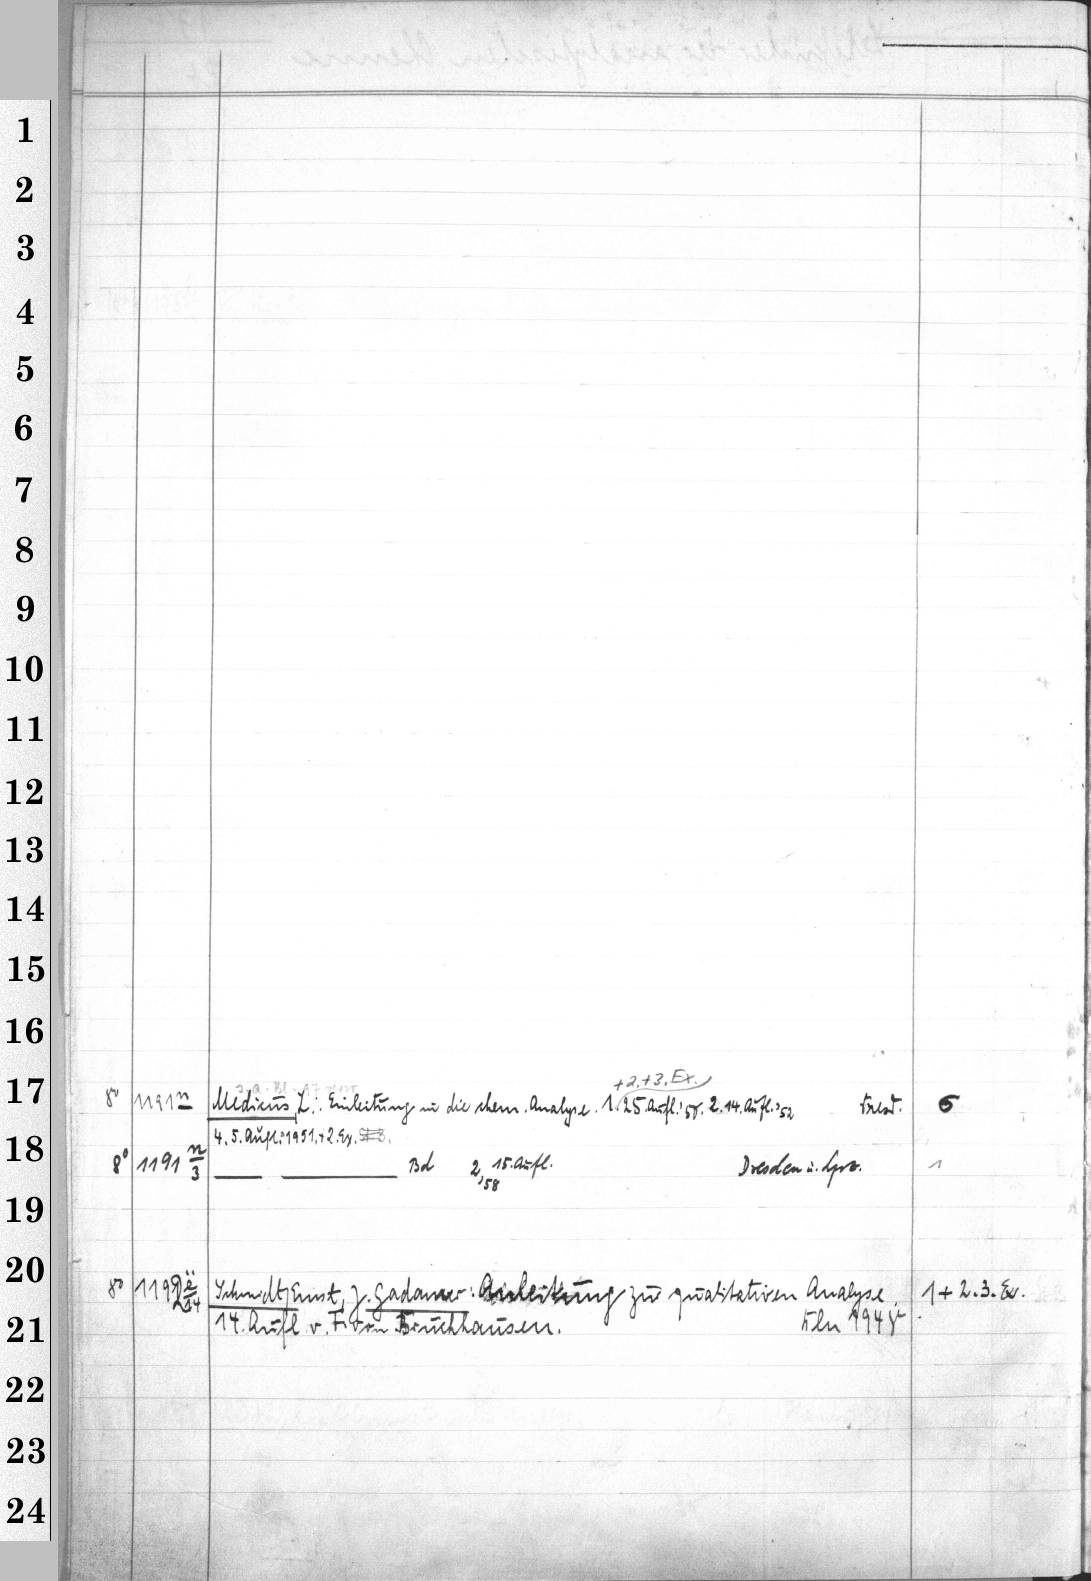 1
2
3
4
5
6
7
8
9
10
11
12
13
14
15
16
17
18
19
20
21
22
23
24
+2.+3. Ex.
8° 1191 n Medicus, L.: Einleitung in die chem. Analyse. 1. 25 Aufl.: 2. 14. Aufl.: 52 Dresd. 6
4. 5. Aufl.: 1951. +2. Ex.
8° 1191 n/3 Bd 2, 15. Aufl. 58 Dresden u. Lpz. 1
8° Schmidt, Ernst, J. Gadamer: Anleitung zur qualitativen Analyse. 1 + 2. 3. Ex.
14. Aufl. v. F. von Bruchhausen. Bln 1948